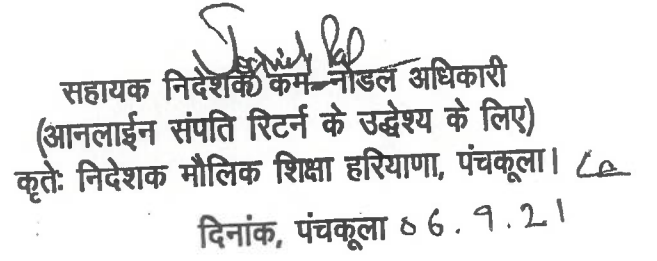 सहायक निदेशक कम नोडल अधिकारी
(आनलाईन संपति रिटर्न के उद्धेश्य के लिए)
कृतेः निदेशक मौलिक शिक्षा हरियाणा, पंचकूला।
दिनांक, पंचकूला 06.9.21